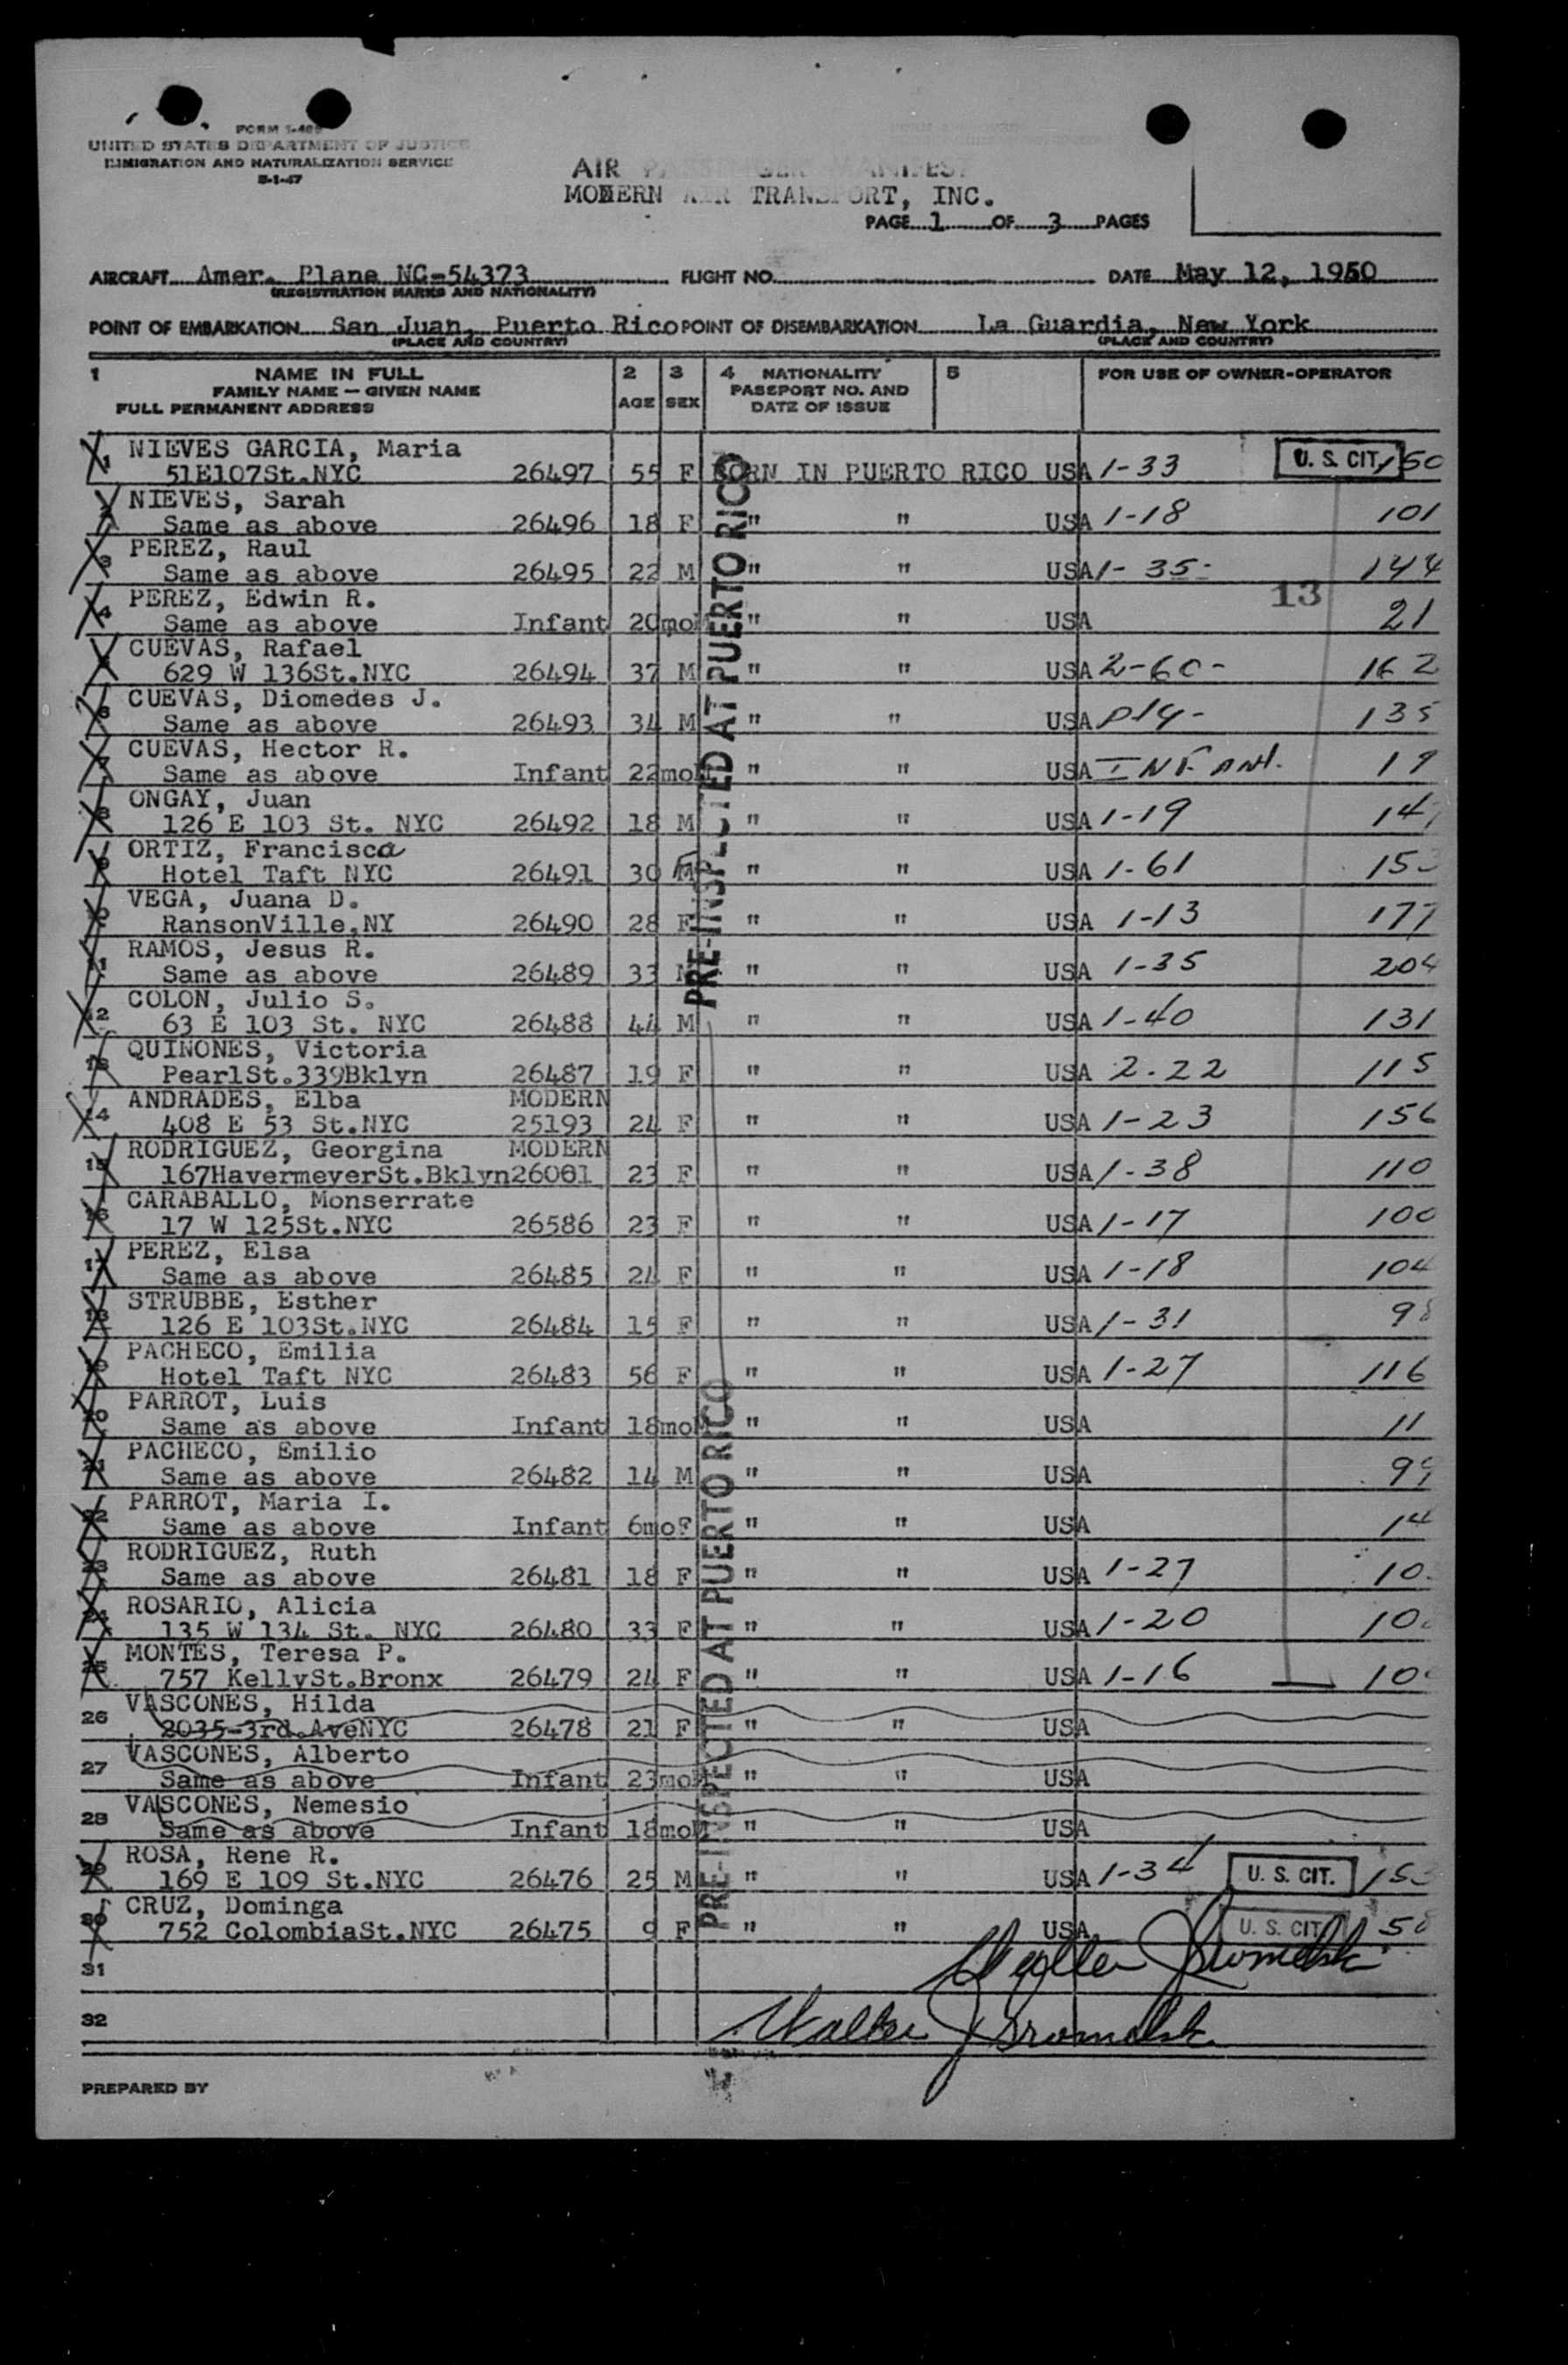 FORM I-466
UNITED STATES DEPARTMENT OF JUSTICE
IMMIGRATION AND NATURALIZATION SERVICE
5-1-47
AIR PASSENGER MANIFEST
MODERN AIR TRANSPORT, INC.
PAGE 1 OF 3 PAGES
AIRCRAFT Amer. Plane NC-54373 FLIGHT NO. DATE May 12, 1950
(REGISTRATION MARKS AND NATIONALITY)
POINT OF EMBARKATION San Juan, Puerto Rico POINT OF DISEMBARKATION La Guardia, New York
(PLACE AND COUNTRY) (PLACE AND COUNTRY)
1 NAME IN FULL 2 3 4 NATIONALITY 5 FOR USE OF OWNER-OPERATOR
FAMILY NAME — GIVEN NAME AGE SEX PASSPORT NO. AND
FULL PERMANENT ADDRESS DATE OF ISSUE
1 NIEVES GARCIA, Maria U. S. CIT.
51E107St.NYC 26497 55 F BORN IN PUERTO RICO USA 1-33 150
2 NIEVES, Sarah
Same as above 26496 18 F " " USA 1-18 101
3 PEREZ, Raul
Same as above 26495 22 M " " USA 1-35- 144
4 PEREZ, Edwin R. 13
Same as above Infant 20mo " " USA 21
CUEVAS, Rafael
629 W 136St.NYC 26494 37 M " " USA 2-60- 162
6 CUEVAS, Diomedes J.
Same as above 26493 34 M " " USA P14- 135
7 CUEVAS, Hector R.
Same as above Infant 22mo " " USA INFANT. 19
8 ONGAY, Juan
126 E 103 St. NYC 26492 18 M " " USA 1-19
9 ORTIZ, Francisca
Hotel Taft NYC 26491 30 F " " USA 1-61
10 VEGA, Juana D.
RansonVille,NY 26490 28 F " " USA 1-13 177
11 RAMOS, Jesus R.
Same as above 26489 33 M " " USA 1-35 204
12 COLON, Julio S.
63 E 103 St. NYC 26488 44 M " " USA 1-40 131
13 QUINONES, Victoria
PearlSt.339Bklyn 26487 19 F " " USA 2.22 115
14 ANDRADES, Elba MODERN
408 E 53 St.NYC 25193 24 F " " USA 1-23 156
15 RODRIGUEZ, Georgina MODERN
167HavermeyerSt.Bklyn26001 23 F " " USA 1-38 110
16 CARABALLO, Monserrate
17 W 125St.NYC 26586 23 F " " USA 1-17 100
17 PEREZ, Elsa
Same as above 26485 24 F " " USA 1-18 104
18 STRUBBE, Esther
126 E 103St.NYC 26484 15 F " " USA 1-31
19 PACHECO, Emilia
Hotel Taft NYC 26483 56 F " " USA 1-27 116
20 PARROT, Luis
Same as above Infant 18mo " " USA 11
21 PACHECO, Emilio
Same as above 26482 14 M " " USA
22 PARROT, Maria I.
Same as above Infant 6moF " " USA 14
23 RODRIGUEZ, Ruth
Same as above 26481 18 F " " USA 1-27
24 ROSARIO, Alicia
135 W 134 St. NYC 26480 33 F " " USA 1-20
25 MONTES, Teresa P.
757 KellySt.Bronx 26479 24 F " " USA 1-16
26 VASCONES, Hilda
2035-3rd.AveNYC 26478 21 F " " USA
27 VASCONES, Alberto
Same as above Infant 23mo " " USA
28 VASCONES, Nemesio
Same as above Infant 18mo " " USA
29 ROSA, Rene R.
169 E 109 St.NYC 26476 25 M " " USA 1-34 U. S. CIT.
30 CRUZ, Dominga
752 ColombiaSt.NYC 26475 9 F " " USA U. S. CIT.
31
32
PREPARED BY
PRE-INSPECTED AT PUERTO RICO
PRE-INSPECTED AT PUERTO RICO